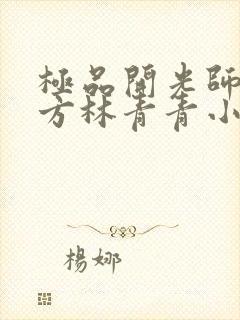 極品開光師
方林青青小
楊娜